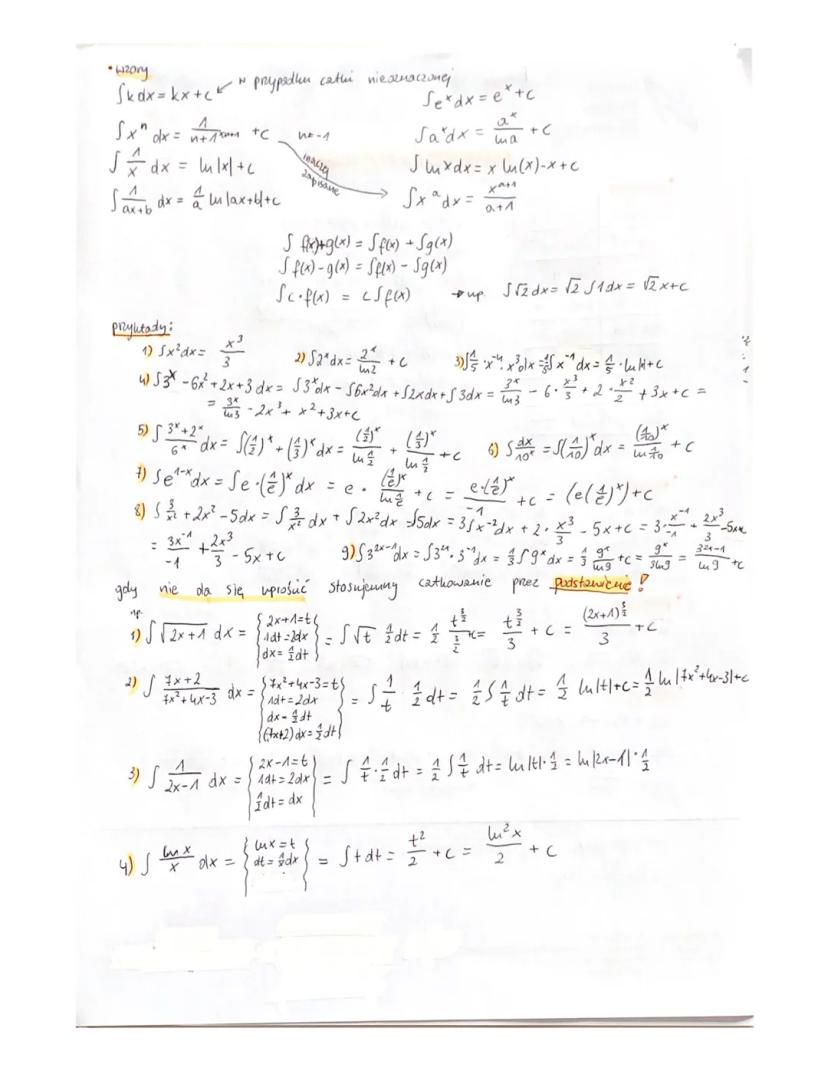 • Wzory
∫k dx = kx + c ← w przypadku całki nieoznaczonej
∫e^x dx = e^x + c
∫x^n dx = 1/(n+1) x^(n+1) + c   n ≠ -1
∫a^x dx = a^x/ln a + c
∫ 1/x dx = ln|x| + c
inaczej zapisane
∫ ln x dx = x ln(x) - x + c
∫ 1/(ax+b) dx = 1/a ln|ax+b| + c
∫x^a dx = x^(a+1)/(a+1)
∫ f(x)+g(x) = ∫f(x) + ∫g(x)
∫ f(x) - g(x) = ∫f(x) - ∫g(x)
∫c·f(x) = c∫f(x) → np. ∫√2 dx = √2 ∫1dx = √2 x + c
przykłady:
1) ∫x² dx = x³/3   2) ∫2^x dx = 2^x/ln2 + c   3) ∫1/5 · x^-4 · x³ dx = 1/5 ∫x^-1 dx = 1/5 · ln|x| + c
4) ∫3^x - 6x² + 2x + 3 dx = ∫3^x dx - ∫6x² dx + ∫2x dx + ∫3dx = 3^x/ln3 - 6 · x³/3 + 2 · x²/2 + 3x + c =
= 3^x/ln3 - 2x³ + x² + 3x + c
5) ∫ (3^x+2^x)/6^x dx = ∫(1/2)^x + (1/3)^x dx = (1/2)^x/ln 1/2 + (1/3)^x/ln 1/2 + c   6) ∫ dx/10^x = ∫(1/10)^x dx = (1/10)^x/ln 1/10 + c
7) ∫e^(1-x) dx = ∫e · (1/e)^x dx = e · (1/e)^x/ln 1/e + c = e·(1/e)^x/-1 + c = (e(1/e)^x) + c
8) ∫ 3/x² + 2x² - 5dx = ∫ 3/x² dx + ∫2x² dx - ∫5dx = 3∫x^-2 dx + 2 · x³/3 - 5x + c = 3 · x^-1/-1 + 2x³/3 - 5x+c
= 3x^-1/-1 + 2x³/3 - 5x + c   9) ∫3^(2x-1) dx = ∫3^2x · 3^-1 dx = 1/3 ∫9^x dx = 1/3 9^x/ln9 + c = 9^x/3ln9 = 3^(2x-1)/ln9 + c
gdy nie da się uprościć stosujemy całkowanie przez podstawienie!
np.
1) ∫√(2x+1) dx = {2x+1=t
1dt=2dx
dx=1/2 dt} = ∫√t 1/2 dt = 1/2 t^(3/2)/(3/2) + c = t^(3/2)/3 + c = (2x+1)^(3/2)/3 + c
2) ∫ (7x+2)/(7x²+4x-3) dx = {7x²+4x-3=t
1dt=2dx
dx=1/2 dt
(7x+2)dx=1/2 dt} = ∫ 1/t · 1/2 dt = 1/2 ∫ 1/t dt = 1/2 ln|t|+c = 1/2 ln|7x²+4x-3|+c
3) ∫ 1/(2x-1) dx = {2x-1=t
1dt=2dx
1/2 dt=dx} = ∫ 1/t · 1/2 dt = 1/2 ∫ 1/t dt = ln|t| · 1/2 = ln|2x-1| · 1/2
4) ∫ ln x/x dx = {ln x=t
dt=1/x dx} = ∫t dt = t²/2 + c = ln²x/2 + c